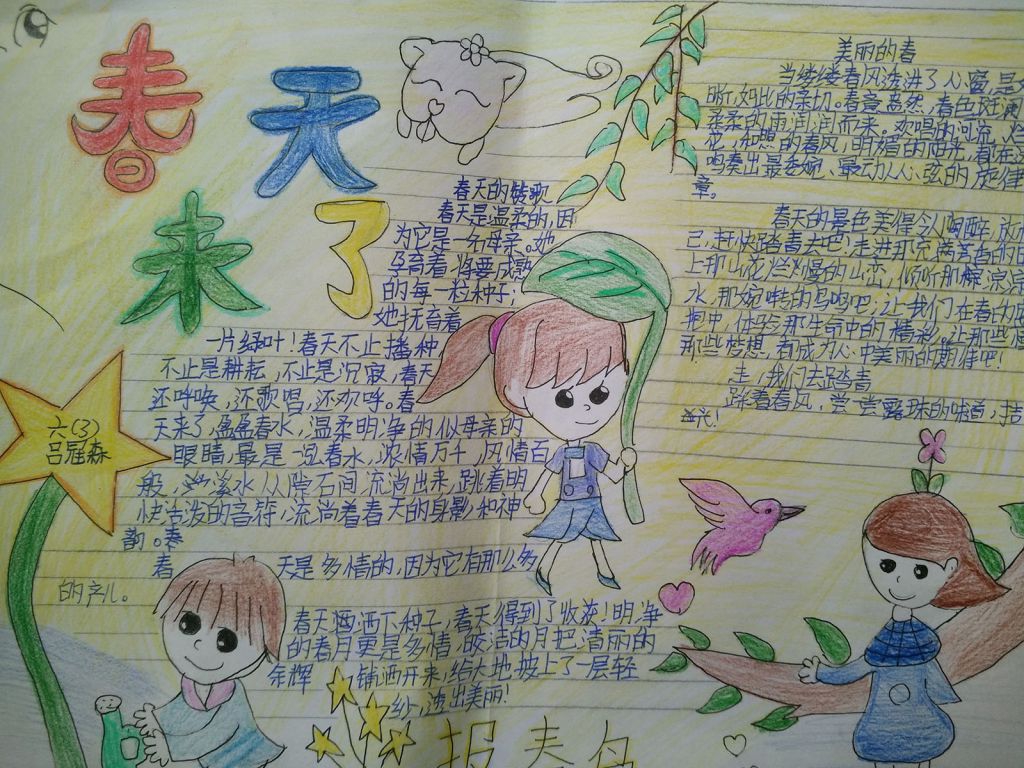 春天
来了
六(3)
吕冠森
春天的赞歌
春天是温柔的,因
为它是一名母亲。她
孕育着将要成熟
的每一粒种子;
她抚育着
一片绿叶!春天不止播种
不止是耕耘,不止是沉寂,春天
还呼唤,还歌唱,还欢呼。春
天来了,盈盈春水,温柔明净的似母亲的
眼睛,最是一泓春水,浓情万千,风情百
般,溪水从隙石间流淌出来,跳着明
快活泼的音符,流淌着春天的身影和神
韵。
春天是多情的,因为它有那么多
的产儿。
春天洒下种子,春天得到了收获!明净
的春月更是多情,皎洁的月把清丽的
余辉铺洒开来,给大地披上了一层轻
纱,透出美丽!
报春鸟
美丽的春
当缕缕春风透进了心窗,是
晰,如此的亲切。春意盎然,春色斑斓
柔柔的雨润润而来。欢唱的河流,
花,和想的春风,明媚的阳光,都在
鸣奏出最委婉、最动人心弦的旋律
章。
春天的景色美得令人陶醉,
己,赶快踏青去吧!走进那充满芳香的
上那山花烂漫的山峦,倾听那
水,那婉啭的鸟鸣吧;让我们在春的
抱中,体验那生命中的精彩,让那些
那些梦想,有成为心中美丽的期待吧!
走,我们去踏青
踩着春风,尝一尝露珠的味道,